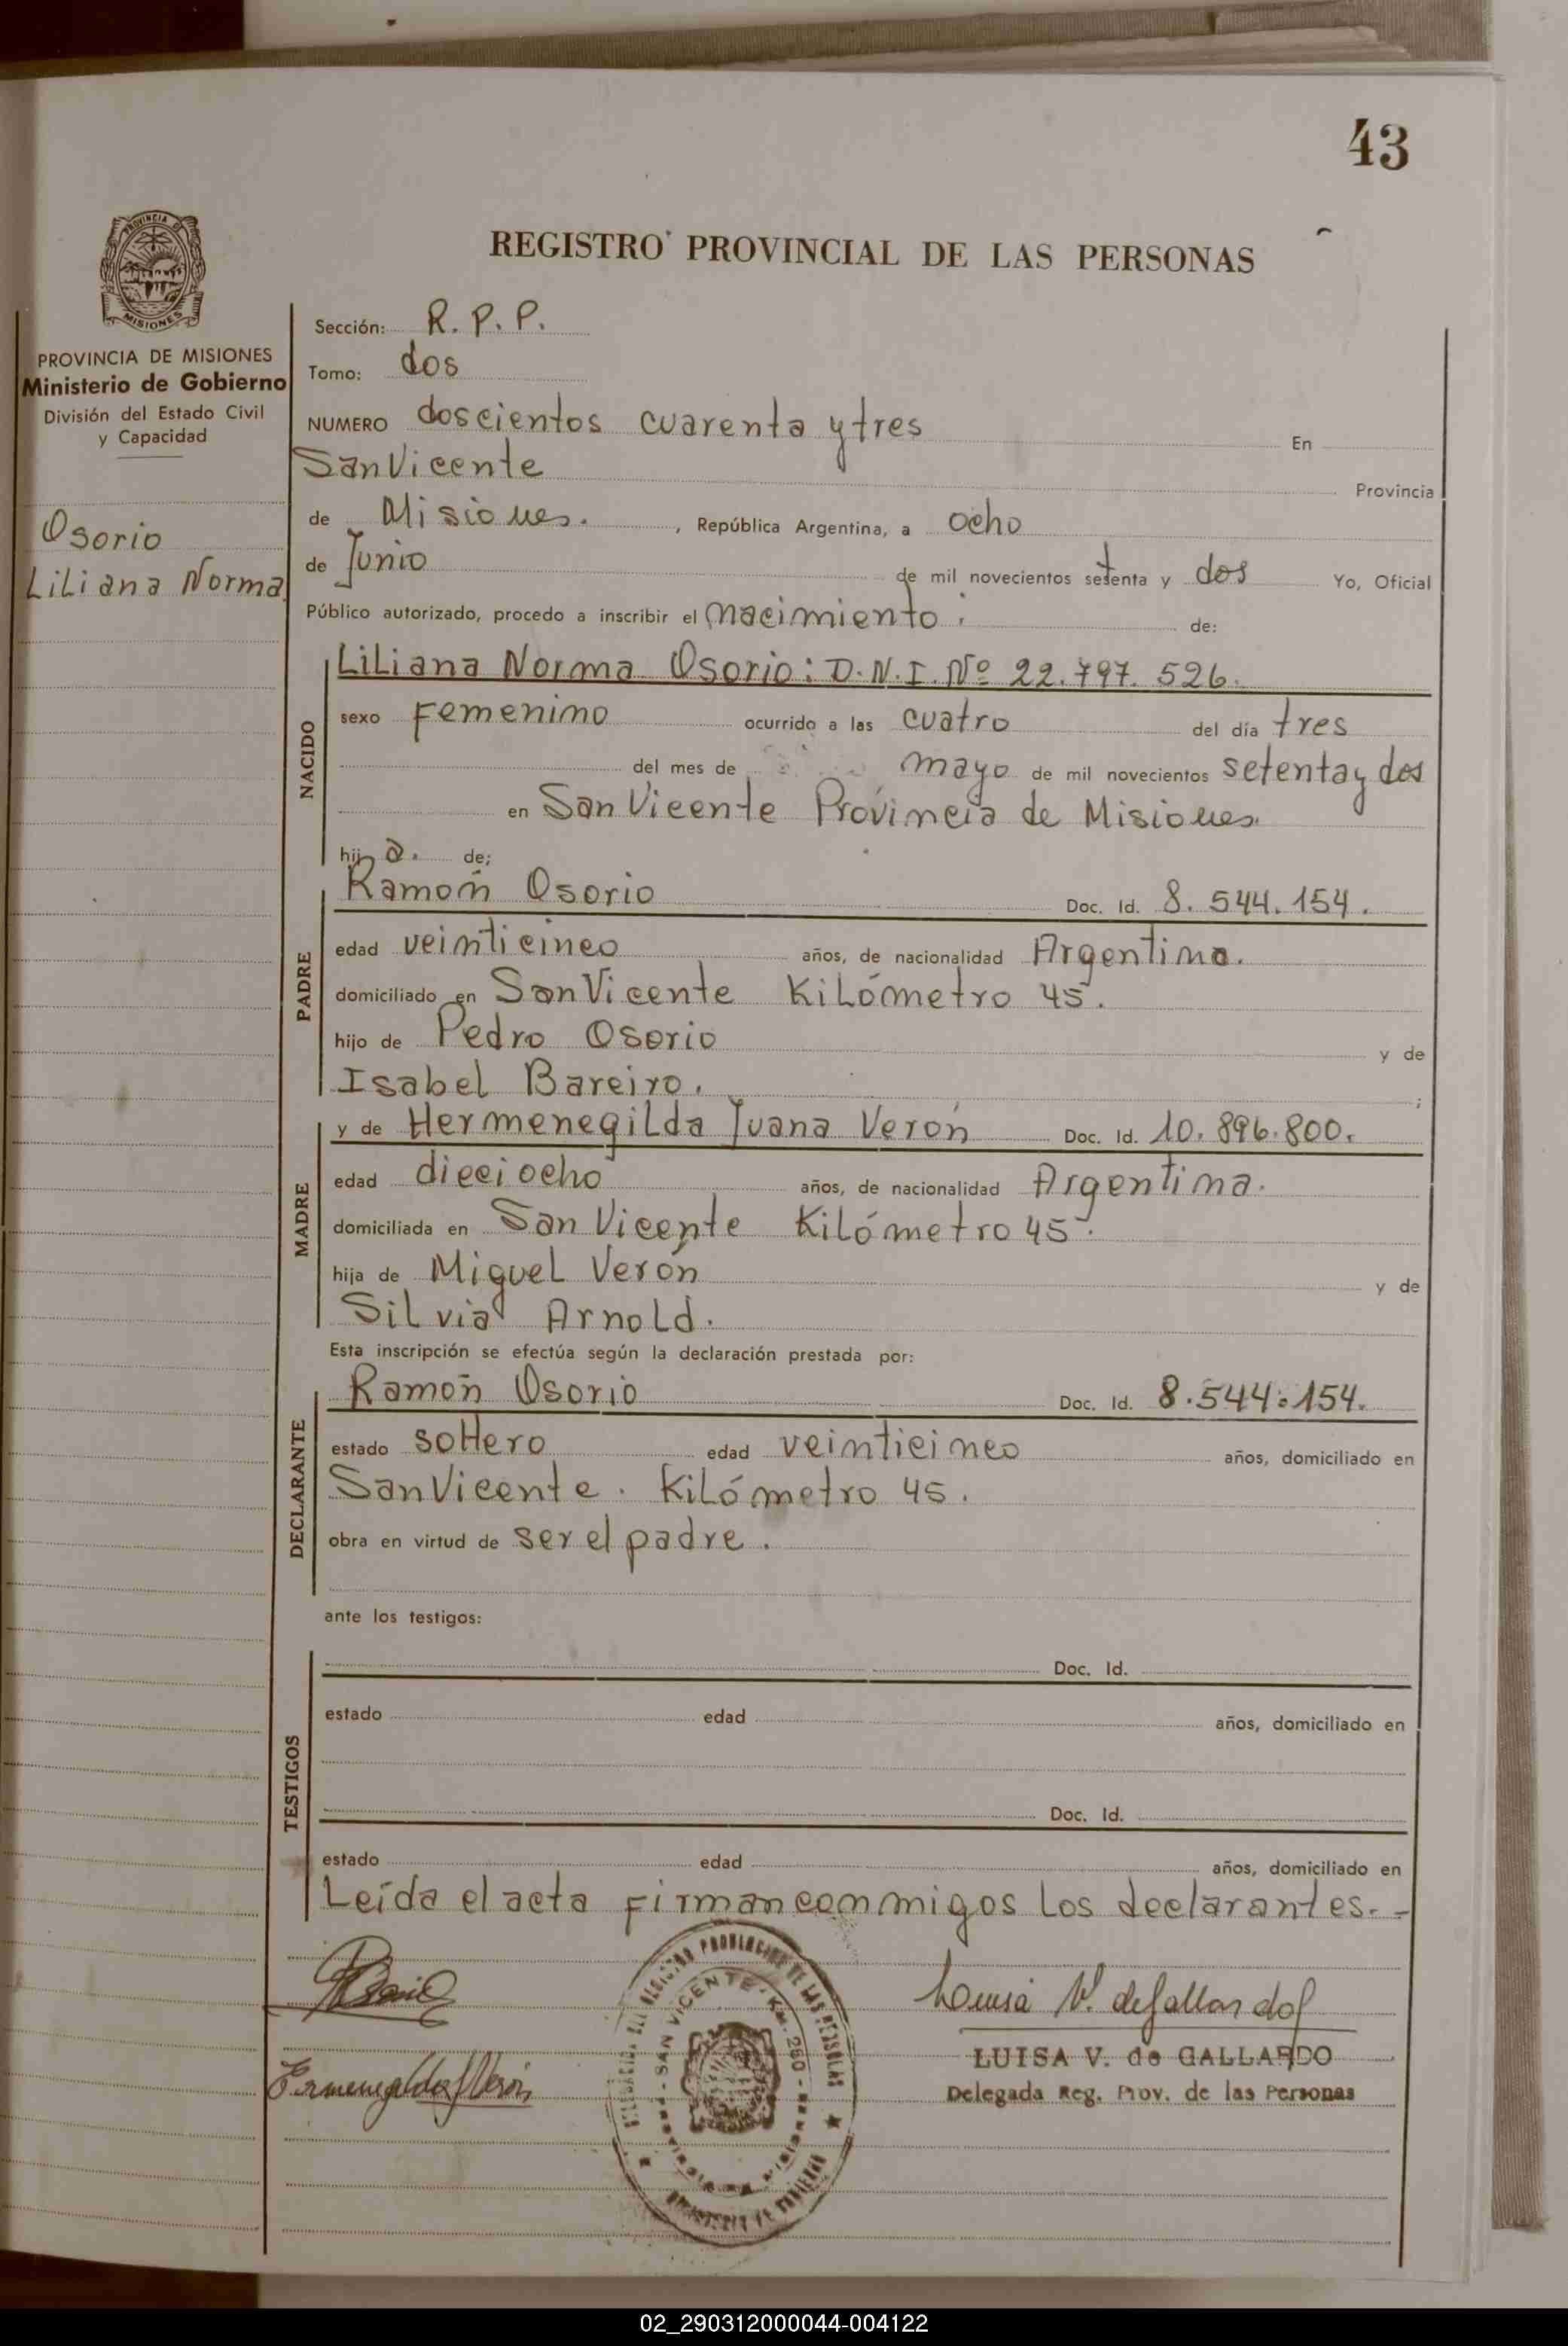 43
PROVINCIA DE
MISIONES
PROVINCIA DE MISIONES
Ministerio de Gobierno
División del Estado Civil
y Capacidad
Osorio
Liliana Norma
REGISTRO PROVINCIAL DE LAS PERSONAS
Sección: R. P. P.
Tomo: dos
NUMERO doscientos cuarenta y tres En
San Vicente Provincia
de Misiones. , República Argentina, a ocho
de Junio de mil novecientos setenta y dos Yo, Oficial
Público autorizado, procedo a inscribir el nacimiento. de:
NACIDO
Liliana Norma Osorio: D.N.I. Nº 22.797.526.
sexo Femenino ocurrido a las cuatro del día tres
del mes de mayo de mil novecientos setenta y dos
en San Vicente Provincia de Misiones.
hij a. de;
PADRE
Ramón Osorio Doc. Id. 8.544.154.
edad veinticinco años, de nacionalidad Argentina.
domiciliado en San Vicente Kilómetro 45.
hijo de Pedro Osorio y de
Isabel Bareiro. ;
MADRE
y de Hermenegilda Juana Verón Doc. Id. 10.896.800.
edad dieciocho años, de nacionalidad Argentina.
domiciliada en San Vicente Kilómetro 45.
hija de Miguel Verón y de
Silvia Arnold.
Esta inscripción se efectúa según la declaración prestada por:
DECLARANTE
Ramón Osorio Doc. Id. 8.544.154.
estado soltero edad veinticinco años, domiciliado en
San Vicente. Kilómetro 45.
obra en virtud de ser el padre.
ante los testigos:
TESTIGOS
Doc. Id.
estado edad años, domiciliado en
Doc. Id.
estado edad años, domiciliado en
Leída el acta firman conmigos los declarantes.-
Luisa V. de Gallardo
LUISA V. de GALLARDO
Delegada Reg. Prov. de las Personas
Ermenegilda J Verón
DEL REGISTRO PROVINCIAL DE LAS PERSONAS
SAN VICENTE - Km. 260 -
MINISTERIO DE GOBIERNO
02_290312000044-004122